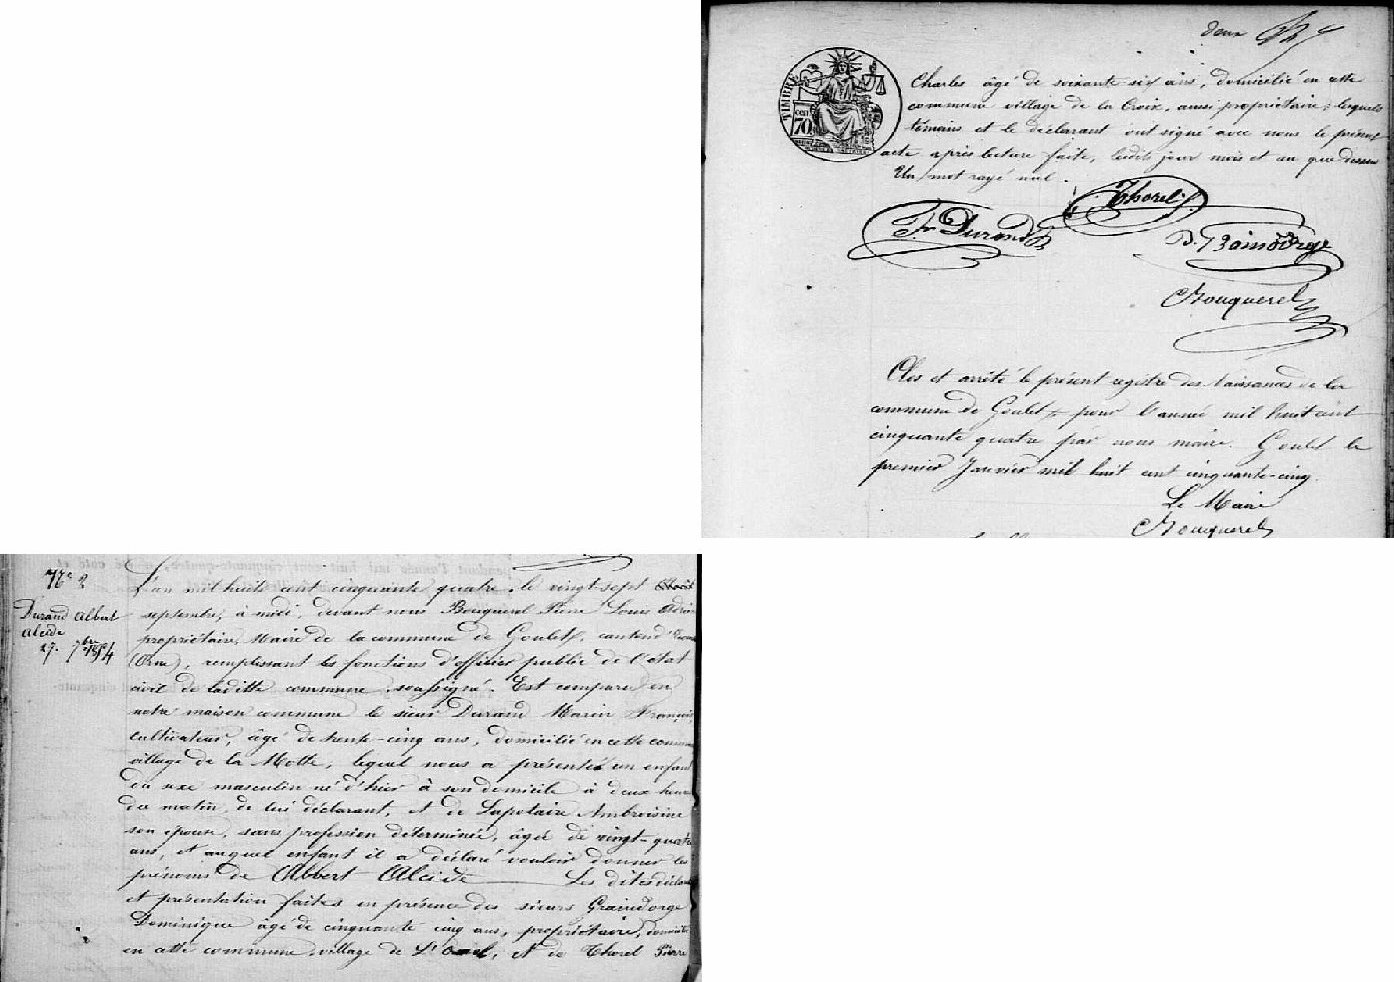 deux
TIMBRE
70
Charles âgé de soixante-six ans, domicilié en cette
commune village de la Croix, aussi propriétaire ; lesquels
témoins et le déclarant ont signé avec nous le présent
acte après lecture faite, lesdits jour mois et an que dessus
Un mot rayé nul.
Thorel
Fr Durand
D. Graindorge
Bouquerel
Clos et arrêté le présent registre des naissances de la
commune de Goulet pour l'année mil huit cent
cinquante quatre par nous maire. Goulet le
premier Janvier mil huit cent cinquante-cinq.
Le Maire
Bouquerel
Durand Albert
Alcide
27. 7bre 1854
L'an mil huit cent cinquante quatre, le vingt-sept
septembre, à midi, devant nous Bouquerel Pierre Louis
propriétaire, Maire de la commune de Goulet, canton d'
(Orne), remplissant les fonctions d'officier public de l'état
civil de laditte commune soussigné. Est comparu en
notre maison commune le sieur Durand Marin François
cultivateur, âgé de trente-cinq ans, domicilié en cette commune
village de la Motte, lequel nous a présenté un enfant
du sexe masculin né d'hier à son domicile à deux heures
du matin, de lui déclarant, et de Lapotaire Ambroisine
son épouse, sans profession déterminée, âgée de vingt-quatre
ans, et auquel enfant il a déclaré vouloir donner les
prénoms de Albert Alcide Les dites
et présentation faites en présence des sieurs Graindorge
Dominique âgé de cinquante cinq ans, propriétaire,
en cette commune village de et de Thorel Pierre